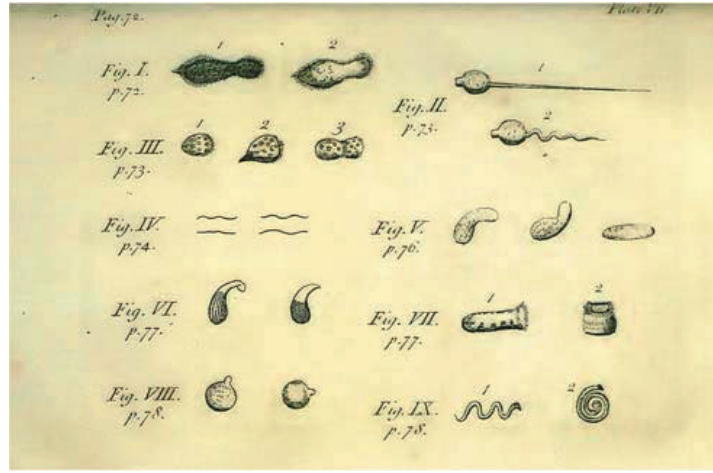 Pag. 72.
Plate VII
Fig. I.
p. 72.
1
2
Fig. II.
p. 73.
1
2
Fig. III.
p. 73.
1
2
3
Fig. IV.
p. 74.
Fig. V.
p. 76.
Fig. VI.
p. 77.
Fig. VII.
p. 77.
1
2
Fig. VIII.
p. 78.
Fig. IX.
p. 78.
1
2